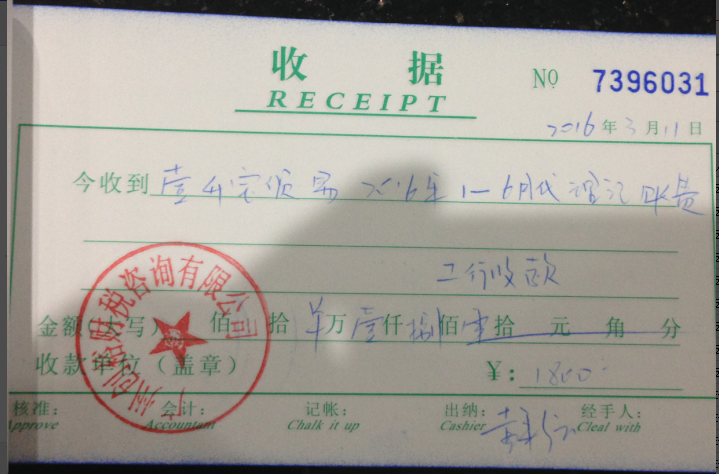 收 据
RECEIPT
NO 7396031
2016年3月11日
今收到 壹 宝贸易 2016年1—6月代理记账费
工行收款
金额(大写) 佰 拾 万壹仟捌佰 拾 元 角 分
收款单位(盖章)
¥: 1800
广州 财税咨询有限公司
核准: 会计: 记帐: 出纳: 经手人:
Approve Accountant Chalk it up Cashier Cleal with